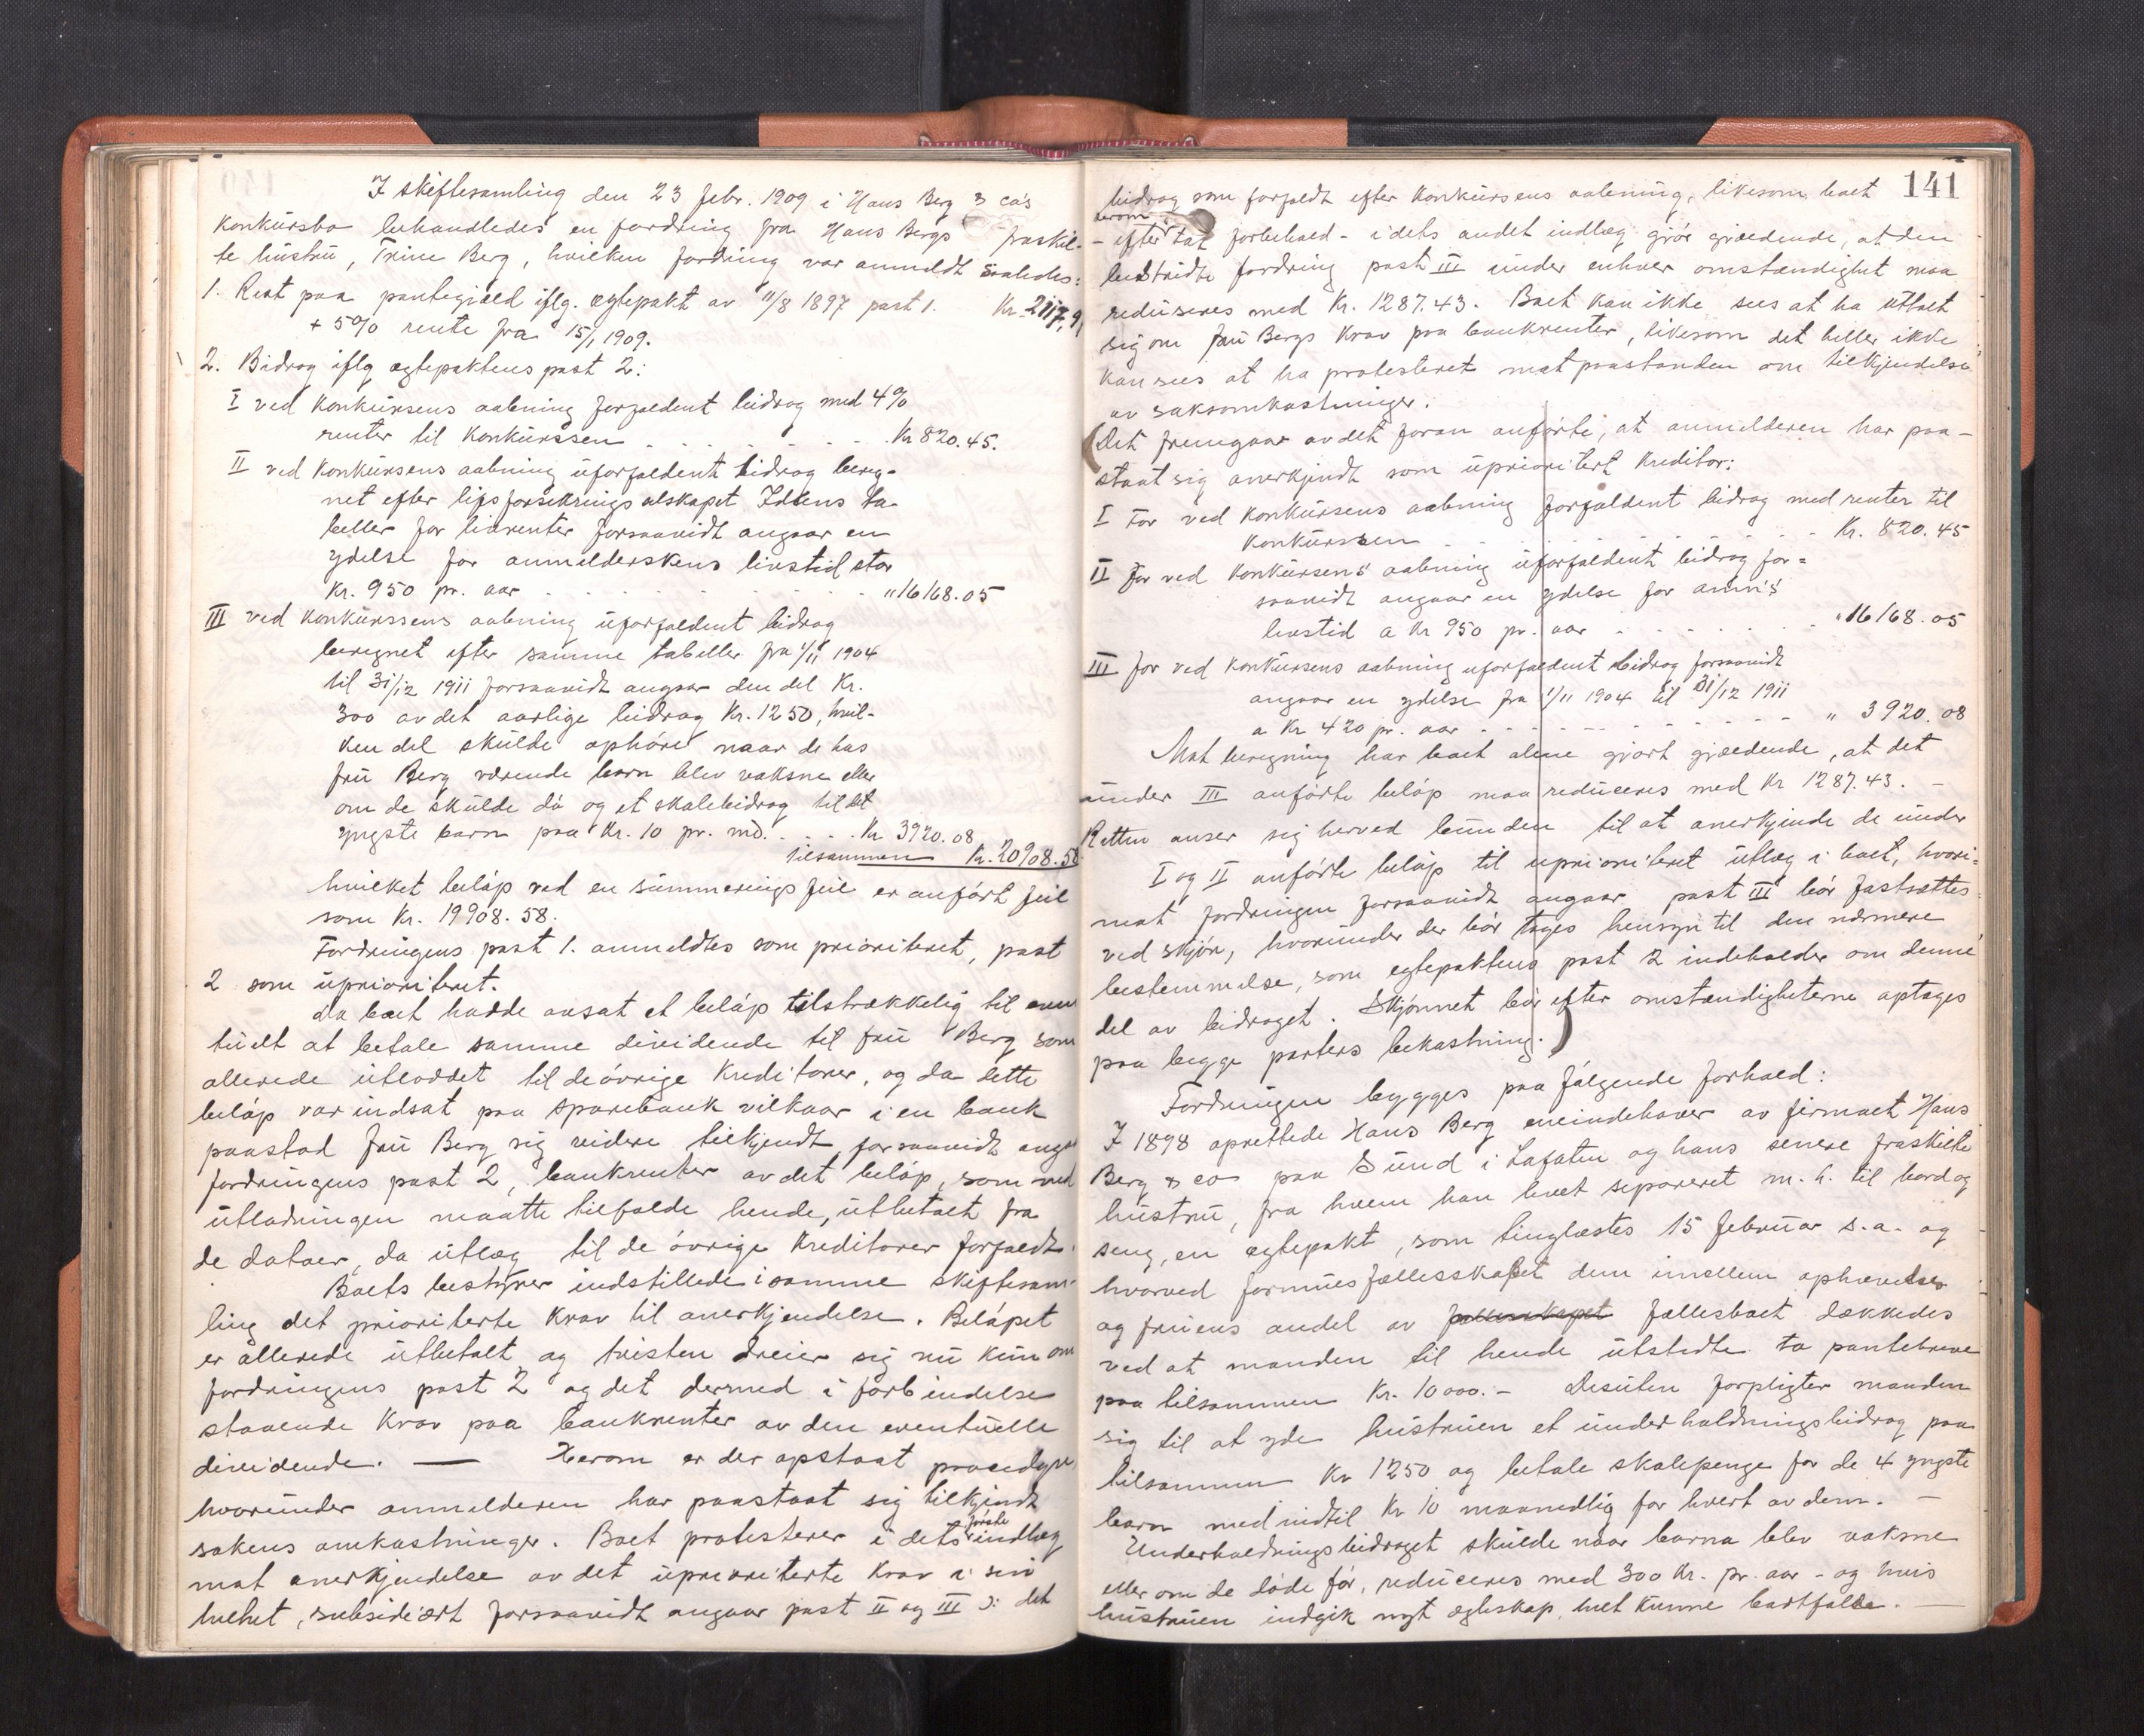 I skiftesamling den 23 febr. 1909 i Hans Berg & co's
konkursbo behandledes en fordring fra Hans Bergs fraskil-
te hustru, Trine Berg, hvilken fordring var anmeldt saaledes:
1. Rest paa pantegjæld iflg. egtepakt av 11/8 1897 post 1. Kr. 2117,9
+ 5% rente fra 15/1 1909.
2. Bidrag iflg egtepaktens post 2:
I ved konkursens aabning forfaldent bidrag med 4%
renter til konkurssen . . . . . . Kr 820.45.
II ved konkursens aabning uforfaldent bidrag bereg-
net efter livsforsikringsselskapet Iduns ta-
beller for livrenter forsaavidt angaar en
ydelse for anmelderskens livstid stor
Kr. 950 pr. aar . . . . . . " 16168.05
III ved konkurssens aabning uforfaldent bidrag
beregnet efter samme tabeller fra 1/11 1904
til 31/12 1911 forsaavidt angaar den del Kr.
300 av det aarlige bidrag Kr. 1250, hvil-
ken del skulde ophøre naar de hos
fru Berg værende barn blev voksne eller
om de skulde dø og et skolebidrag til det
yngste barn paa Kr. 10 pr. md. . . . . Kr 3920.08
tilsammen Kr. 20908.58
hvilket beløp ved en summeringsfeil er anført feil
som Kr. 19908.58.
Fordringens post 1. anmeldtes som prioriteret, post
2 som uprioriteret.
Da boet hadde avsat et beløp tilstrækkelig til even
tuelt at betale samme dividende til fru Berg som
allerede utloddet til de øvrige kreditorer, og da dette
beløp var indsat paa sparebank vilkaar i en bank
paastod fru Berg sig videre tilkjendt forsaavidt ang
fordringens post 2, bankrenter av det beløp, som ved
utlodningen maatte tilfalde hende, utbetalt fra
de datoer, da utlæg til de øvrige kreditorer forfaldt.
Boets bestyrer indstillede i samme skiftesam-
ling det prioriterte krav til anerkjendelse. Beløpet
er allerede utbetalt og tvisten dreier sig nu kun om
fordringens post 2 og det dermed i forbindelse
staaende krav paa bankrenter av den eventuelle
dividende. — Herom er der opstaat procedyre,
hvorunder anmelderen har paastaat sig tilkjendt
sakens omkostninger. Boet protesterer i dets første indlæg
mot anerkjendelse av det uprioriterte krav i sin
helhet, subsidiært forsaavidt angaar post II og III ɔ: det
141
bidrag som forfaldt efter konkursens aabning, likesom boet
- efter herom tat forbehold - i dets andet indlæg gjør gjældende, at den
bestridte fordring post III under enhver omstændighet maa
reduseres med Kr. 1287.43. Boet kan ikke sees at ha uttalt
sig om fru Bergs krav paa bankrenter, likesom det heller ikke
kan sees at ha protesteret mot paastanden om tilkjendelse
av saksomkostninger.
(Det fremgaar av det foran anførte, at anmelderen har paa-
staat sig anerkjendt som uprioritert kreditor:
I For ved konkursens aabning forfaldent bidrag med renter til
konkurssen . . . . . . Kr. 820.45
II for ved konkursens aabning uforfaldent bidrag for-
saavidt angaar en ydelse for anm's
livstid a Kr 950 pr. aar . . . . . . " 16168.05
III for ved konkursens aabning uforfaldent bidrag forsaavidt
angaar en ydelse fra 1/11 1904 til 31/12 1911
a Kr 420 pr. aar . . . . . . " 3920.08
Mot beregning har boet alene gjort gjældende, at det
under III anførte beløp maa reduceres med Kr 1287.43. -
Retten anser sig herved bunden til at anerkjende de under
I og II anførte beløp til uprioriteret utlæg i boet, hvori-
mot fordringen forsaavidt angaar post III bør fastsættes
ved skjøn, hvorunder der bør tages hensyn til den nærmere
bestemmelse, som egtepaktens post 2 indeholder om denne
del av bidraget. Skjønnet bør efter omstændigheterne optages
paa begge parters bekostning.)
Fordringen bygges paa følgende forhold:
I 1898 oprettede Hans Berg eneindehaver av firmaet Hans
Berg & co paa Sund i Lofoten og hans senere fraskilte
hustru, fra hvem han levet separeret m. h. til bord og
seng, en egtepakt, som tinglæstes 15 februar s. a. og
hvorved formuesfællesskapet dem imellem ophævedes
og fruens andel av fællesskapet fællesboet dækkedes
ved at manden til hende utstedte to pantebreve
paa tilsammen Kr. 10000.- Desuten forpligter manden
sig til at yde hustruen et underholdningsbidrag paa
tilsammen Kr 1250 og betale skolepenge for de 4 yngste
barn med indtil Kr 10 maanedlig for hvert av dem. -
Underholdningsbidraget skulde naar barna blev voksne
eller om de døde før, reduceres med 300 Kr. pr. aar - og hvis
hustruen indgik nyt egteskap, helt kunne bortfalde. —